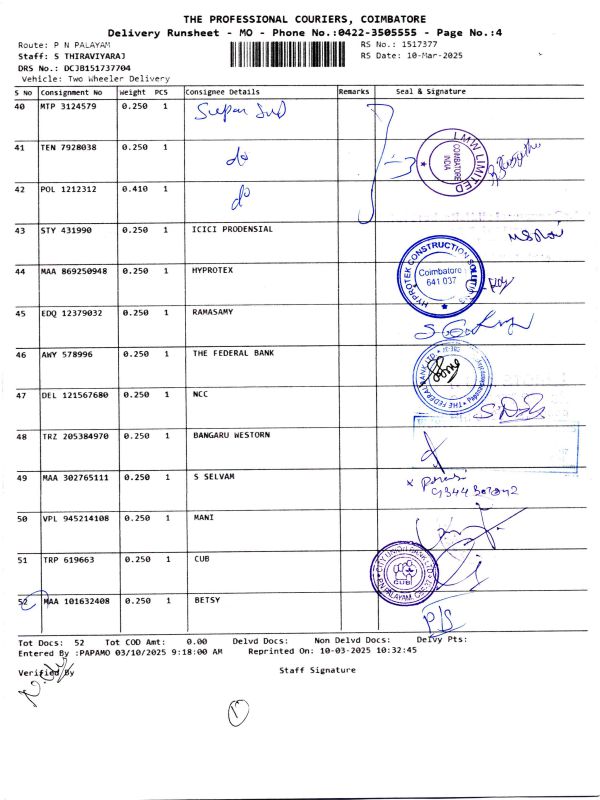 THE PROFESSIONAL COURIERS, COIMBATORE
Delivery Runsheet - MO - Phone No.:0422-3505555 - Page No.:4
Route: P N PALAYAM RS No.: 1517377
Staff: S THIRAVIYARAJ RS Date: 10-Mar-2025
DRS No.: DCJB151737704
Vehicle: Two Wheeler Delivery
S No Consignment No Weight PCS Consignee Details Remarks Seal & Signature
40 MTP 3124579 0.250 1
41 TEN 7928038 0.250 1 do
LMW LIMITED
COIMBATORE
INDIA
42 POL 1212312 0.410 1 do
43 STY 431990 0.250 1 ICICI PRODENSIAL
44 MAA 869250948 0.250 1 HYPROTEX
HYPROTEK CONSTRUCTION SOLUTIONS
Coimbatore
641 037
45 EDQ 12379032 0.250 1 RAMASAMY
46 AWY 578996 0.250 1 THE FEDERAL BANK
THE FEDERAL BANK LTD.
47 DEL 121567680 0.250 1 NCC
48 TRZ 205384970 0.250 1 BANGARU WESTORN
49 MAA 302765111 0.250 1 S SELVAM
50 VPL 945214108 0.250 1 MANI
51 TRP 619663 0.250 1 CUB
CITY UNION BANK LTD
CUB
52 MAA 101632408 0.250 1 BETSY
P/S
Tot Docs: 52 Tot COD Amt: 0.00 Delvd Docs: Non Delvd Docs: Delvy Pts:
Entered By :PAPAMO 03/10/2025 9:18:00 AM Reprinted On: 10-03-2025 10:32:45
Verified By Staff Signature